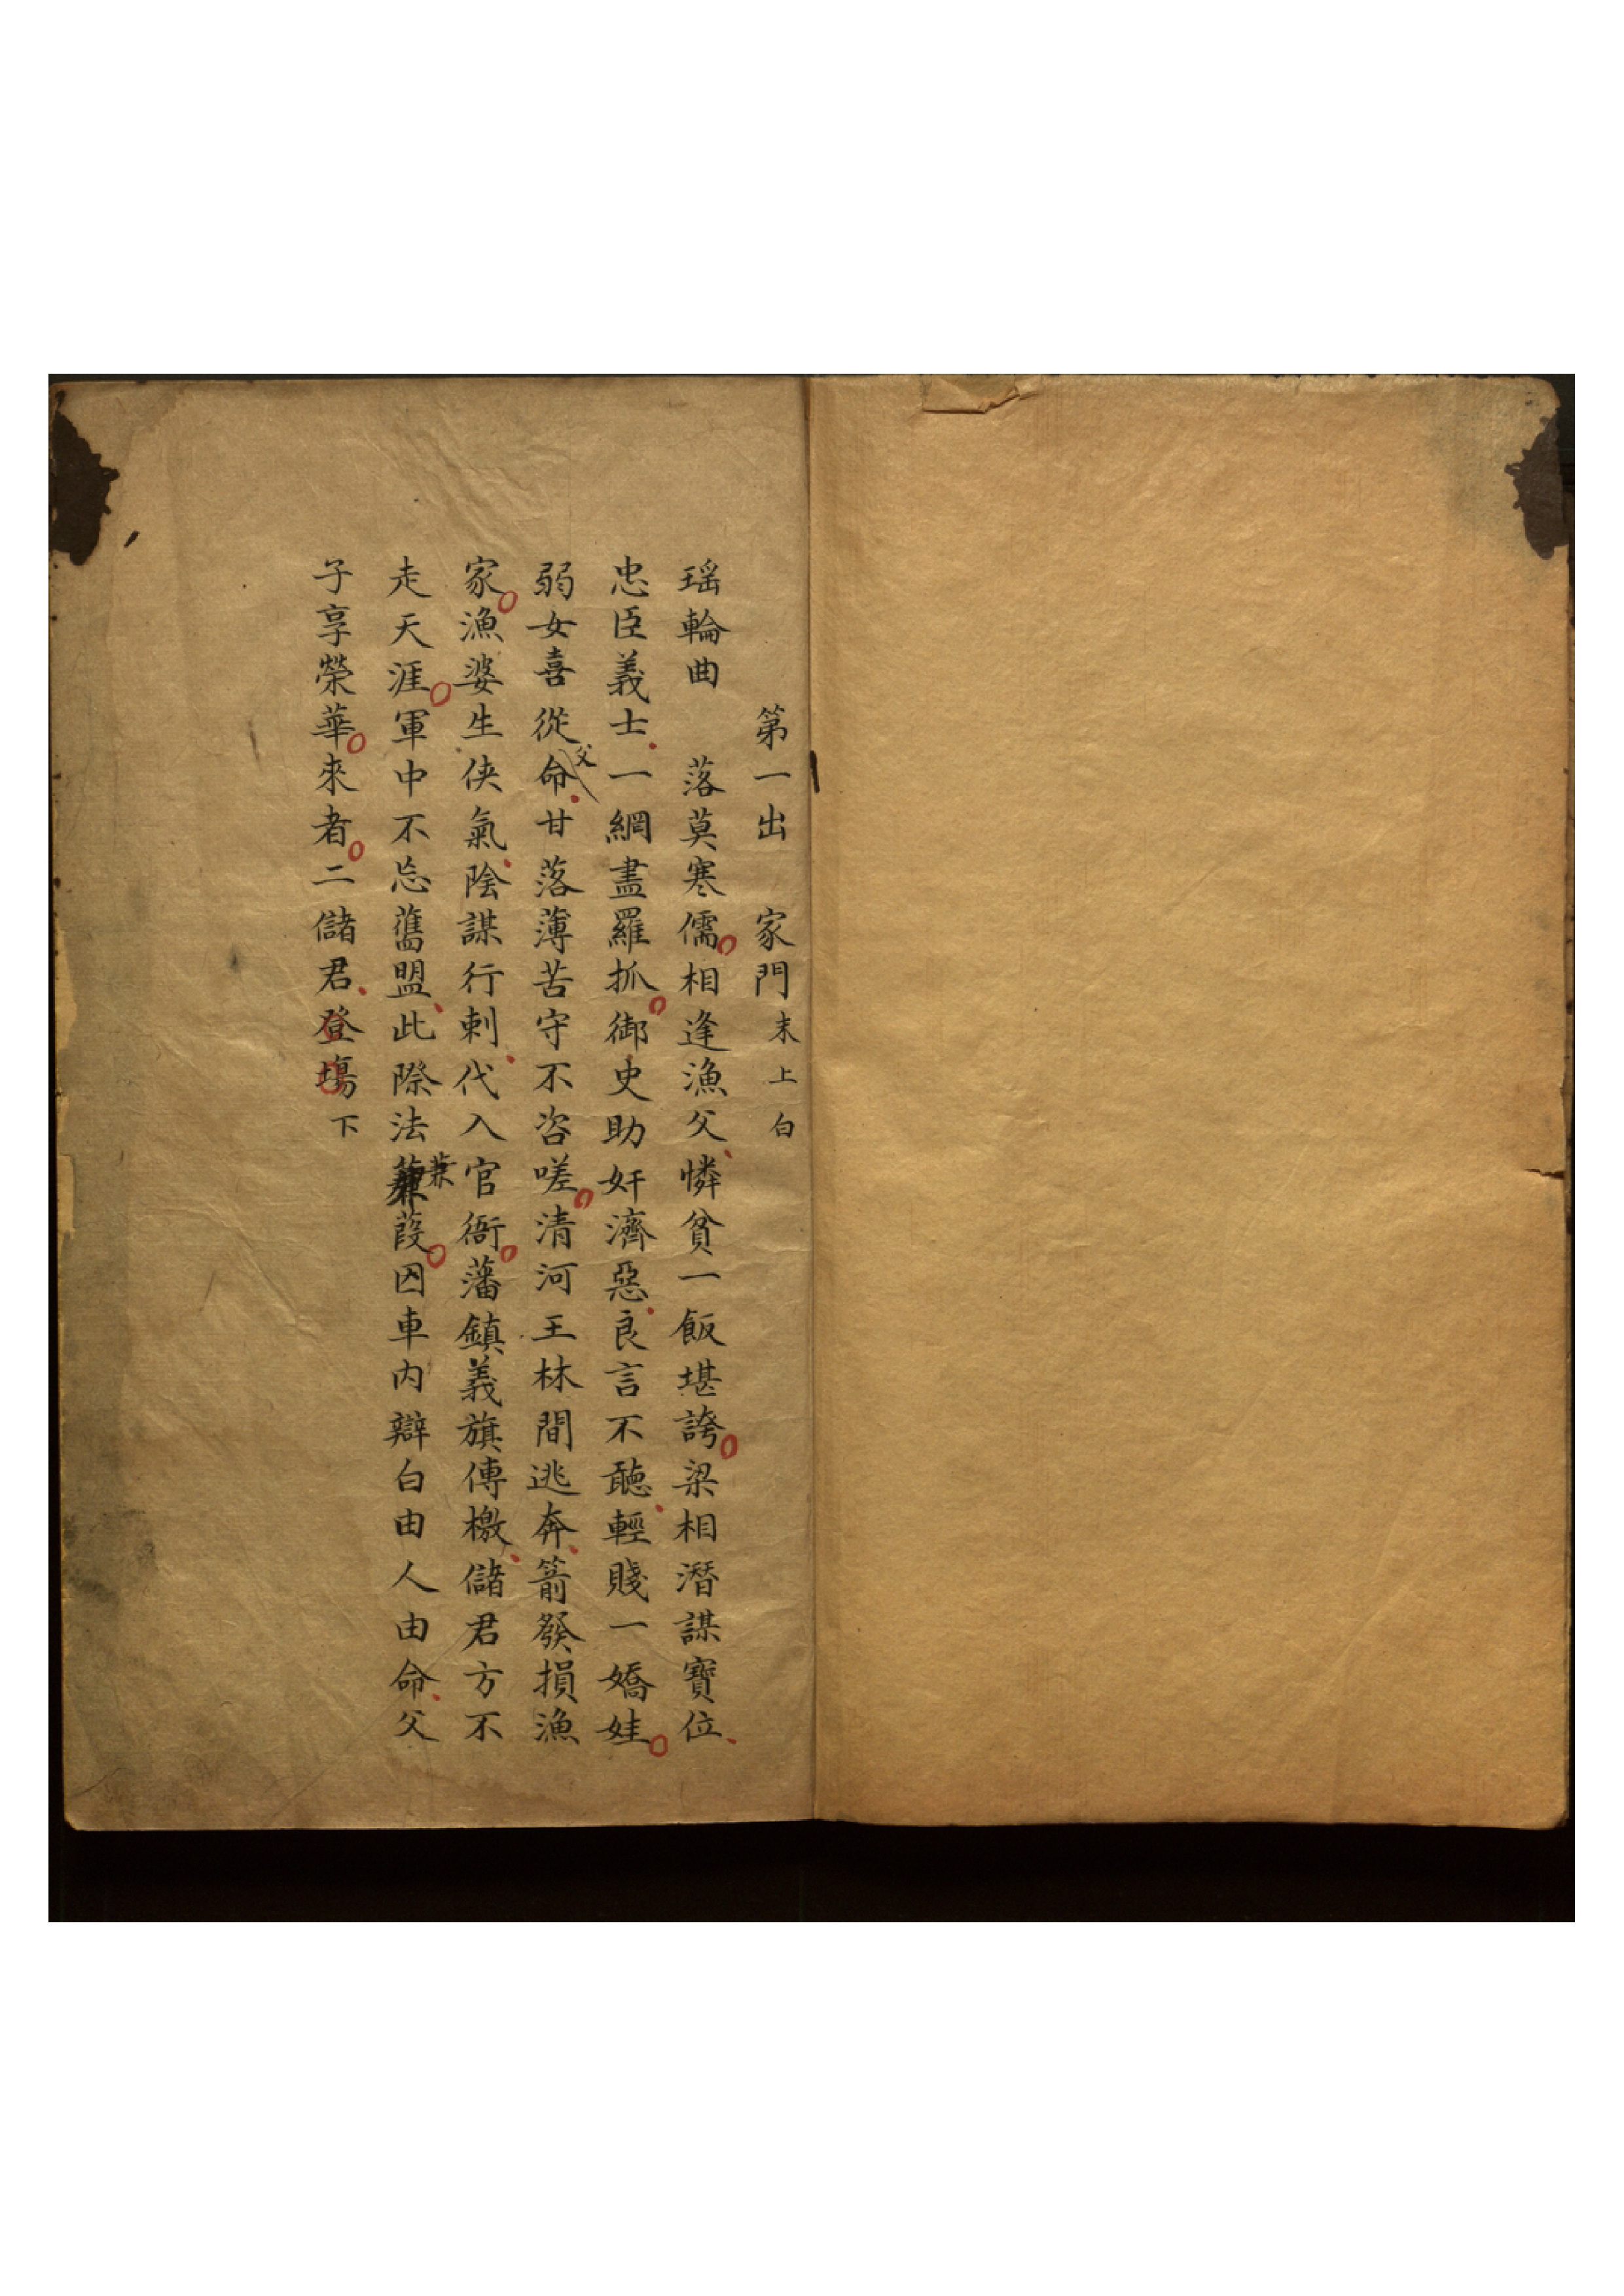 第一出　家門　末上白
瑶輪曲　落莫寒儒相逢漁父憐貧一飯堪誇梁相潛謀寶位
忠臣義士一網盡羅抓御史助奸濟惡良言不聽輕賤一嬌娃
弱女喜從父命甘落薄苦守不咨嗟清河王林間逃奔箭發損漁
家漁婆生俠氣陰謀行刺代入官衙藩鎮義旗傳檄儲君方不
走天涯軍中不忘舊盟此際法蒹葭囚車內辯白由人由命父
子享榮華來者二儲君登塲下